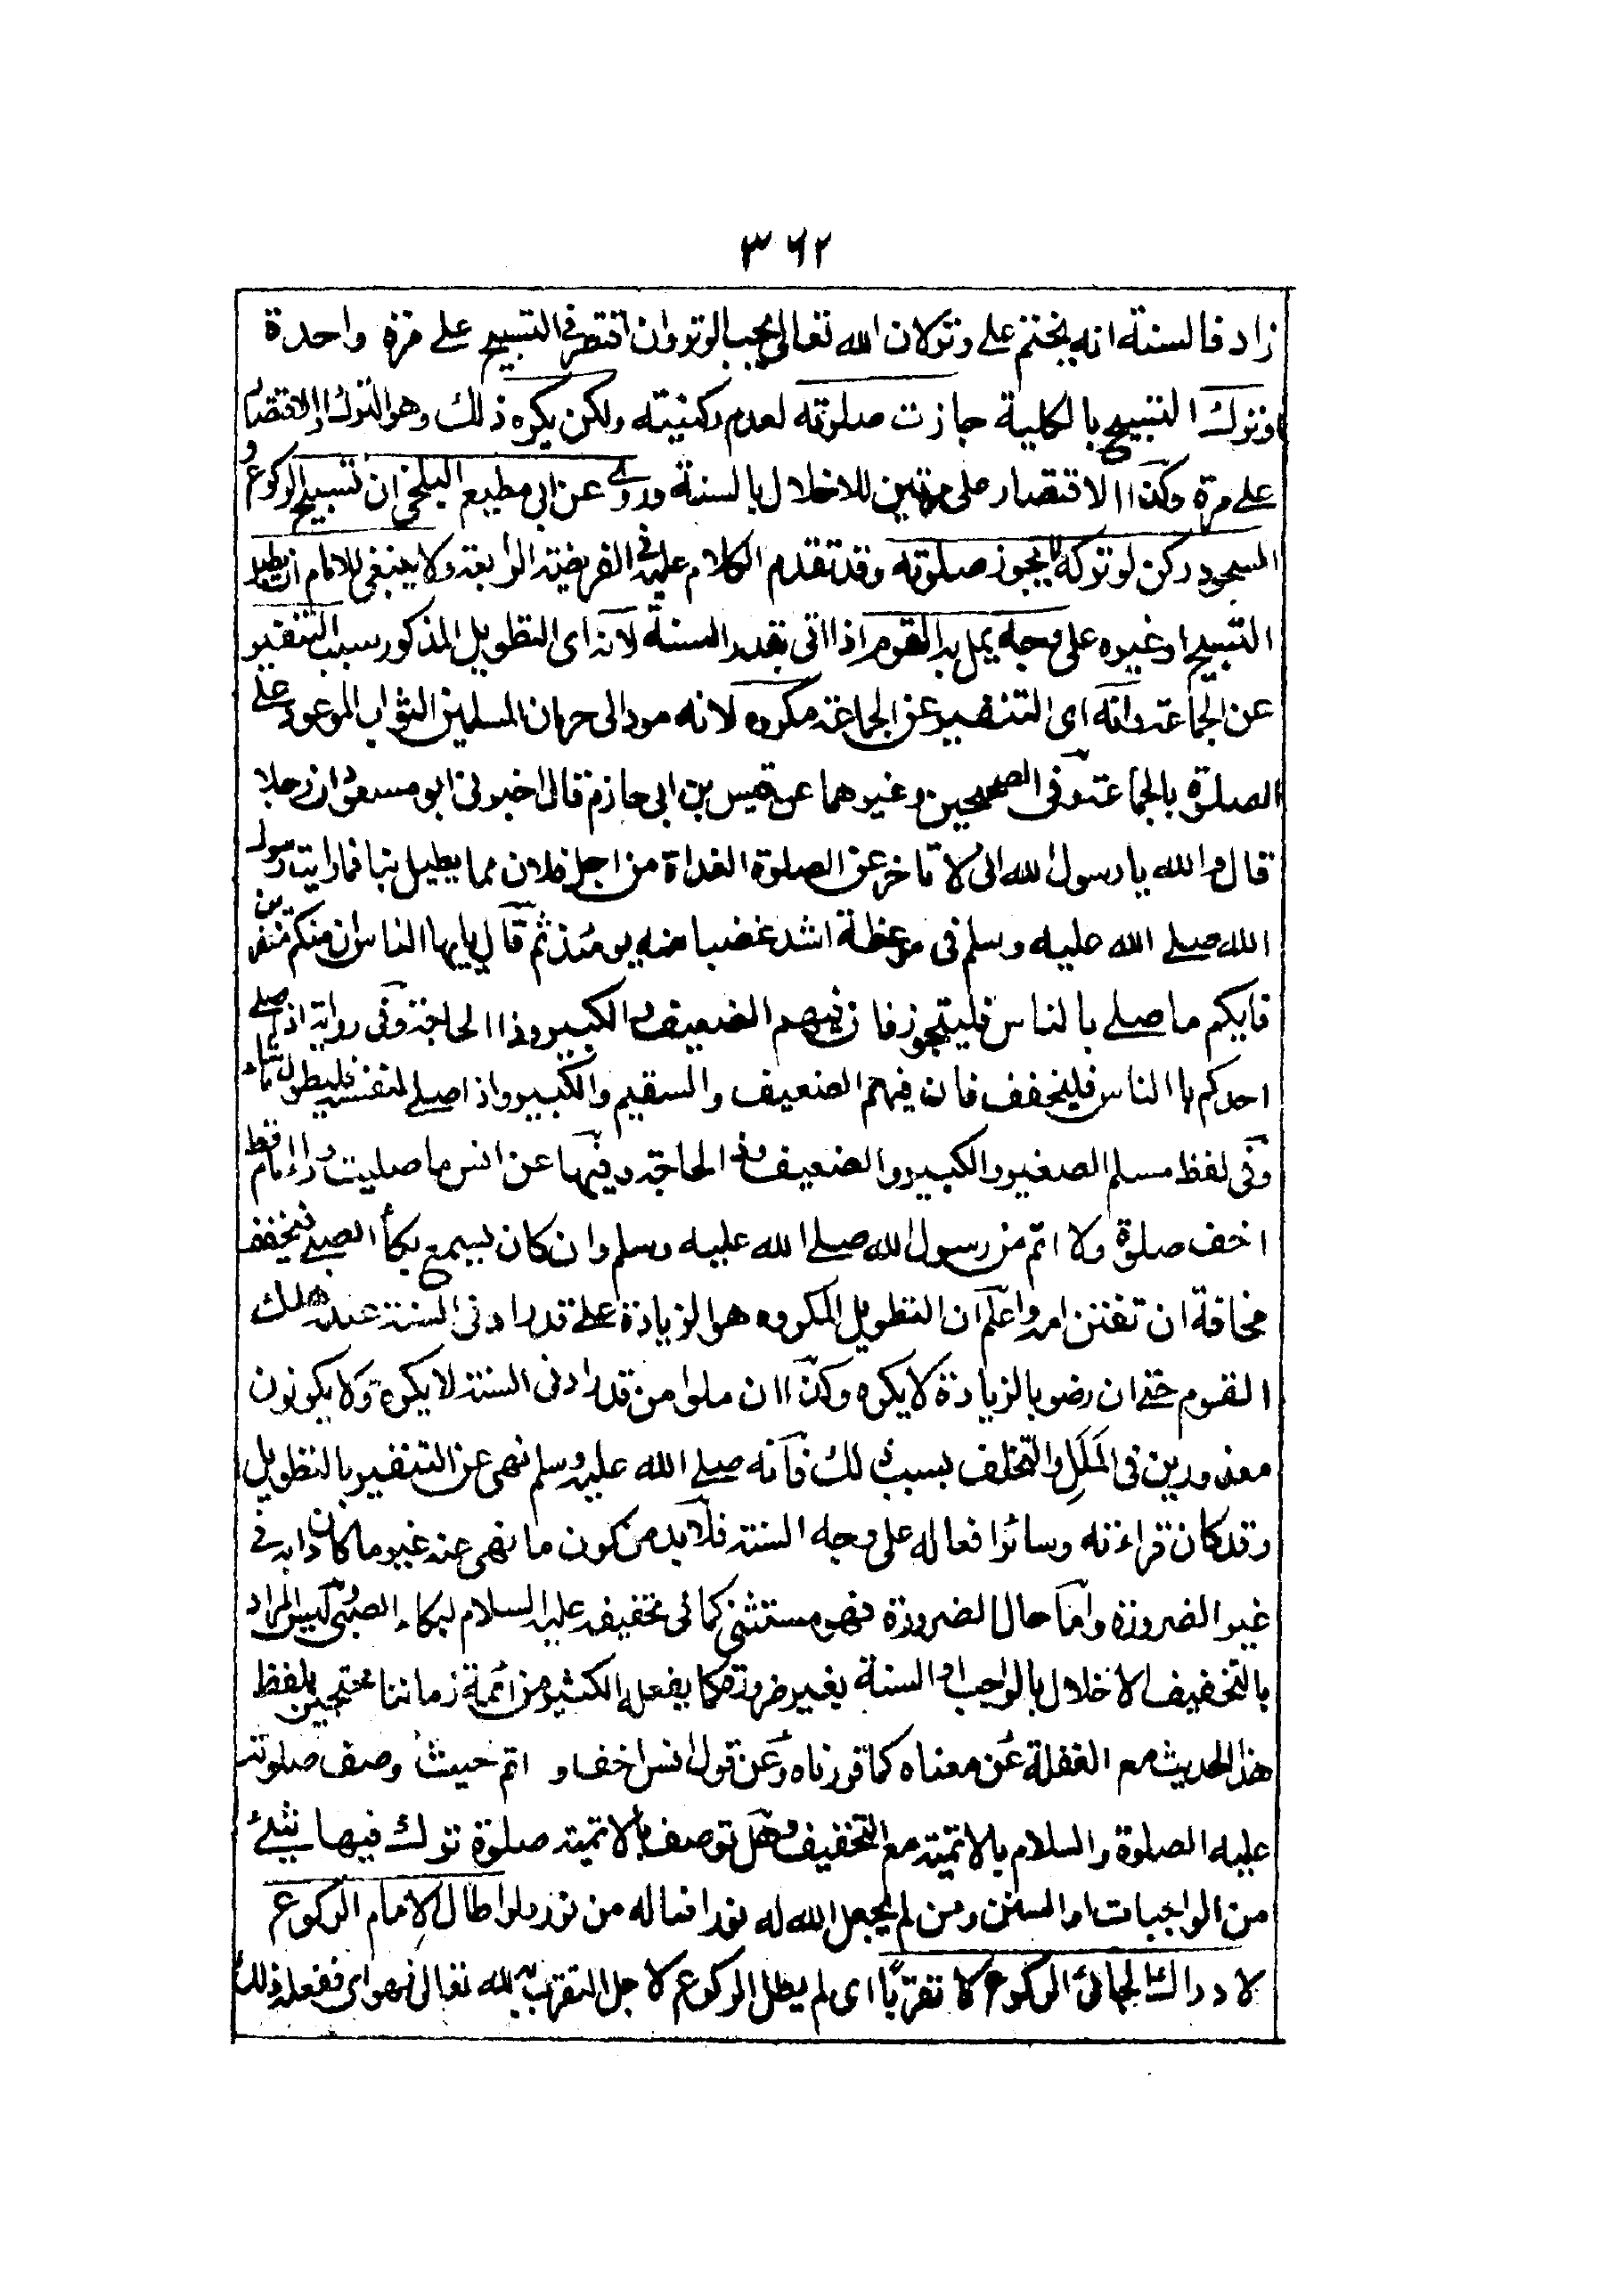 ٣٦٢
زاد فالسنة انه يختم على وتر لان الله تعالى يحب الوتر وان اقتصر فى التسبيح على مرة واحدة
او ترك التسبيح بالكلية جازت صلوته لعدم ركنيته ولكن يكره ذلك وهو الترك او الاقتصار
على مرة وكذا الاقتصار على مرتين للاخلال بالسنة وروى عن ابى مطيع البلخى ان تسبيح الركوع و
السجود ركن لو تركه لا يجوز صلوته وقد تقدم الكلام عليه فى الفريضة الرابعة ولا ينبغى للامام ان يطيل
التسبيح او غيره على وجه يمل به القوم اذا اتى بقدر السنة لانه اى التطويل المذكور سبب التنفير
عن الجماعة وانه اى التنفير عن الجماعة مكروه لانه مود الى حرمان المسلمين الثواب الموعود على
الصلوة بالجماعة وفى الصحيحين وغيرهما عن قيس بن ابى حازم قال اخبرنى ابو مسعود ان رجلا
قال والله يا رسول الله انى لا تاخر عن الصلوة الغداة من اجل فلان مما يطيل بنا فما رايت رسول
الله صلى الله عليه وسلم فى موعظة اشد غضبا منه يومئذ ثم قال يايها الناس ان منكم منفرين
فايكم ما صلى بالناس فليتجوز فان فيهم الضعيف والكبير وذا الحاجة وفى رواية اذا صلى
احدكم بالناس فليخفف فان فيهم الضعيف والسقيم والكبير واذا صلى لنفسه فليطول ما شاء
وفى لفظ مسلم الصغير والكبير والضعيف وذا الحاجة وفيها عن انس ما صليت وراء امام قط
اخف صلوة ولا اتم من رسول الله صلى الله عليه وسلم وان كان ليسمع بكاء الصبى فيخفف
مخافة ان تفتن امه واعلم ان التطويل المكروه هو الزيادة على قدر ادنى السنة عند ملل
القوم حتى ان رضو بالزيادة لا يكره وكذا ان ملوا من قدر ادنى السنة لا يكره ولا يكونون
معذورين فى الملل والتخلف بسبب ذلك فانه صلى الله عليه وسلم نهى عن التنفير بالتطويل
وقد كان قراءته وسائر افعاله على وجه السنة فلا بد من كون ما نهى عنه غير ما كان دابه فى
غير الضرورة واما حال الضرورة فهو مستثنى كما فى تخفيفه عليه السلام لبكاء الصبى وليس المراد
بالتخفيف الاخلال بالواجب او السنة بغير ضرورة كما يفعله الكثير من ائمة زماننا محتجين بلفظ
هذا الحديث مع الغفلة عن معناه كما قررناه وعن قول انس اخف و اتم حيث وصف صلوته
عليه الصلوة والسلام بالاتمية مع التخفيف وهل توصف بالاتمية صلوة ترك فيها شئ
من الواجبات او السنن ومن لم يجعل الله له نورا فما له من نور ولو اطال الامام الركوع
لادراك الجائى الركوع لا تقربا اى لم يطل الركوع لاجل التقرب لله تعالى فهو اى ففعله ذلك